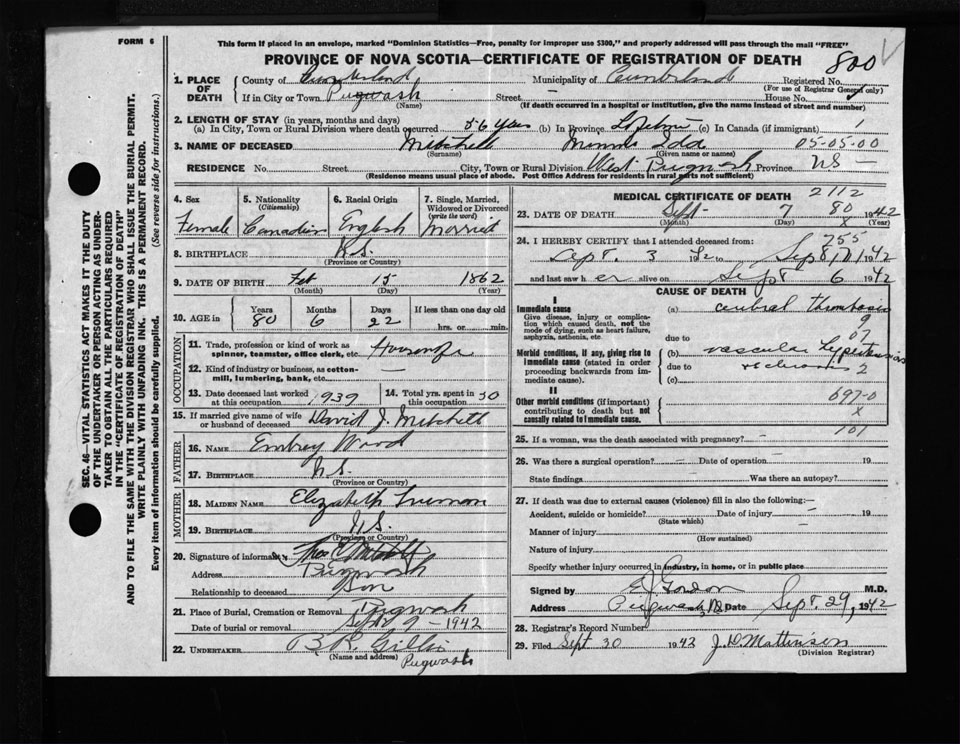 FORM 6
This form if placed in an envelope, marked "Dominion Statistics—Free, penalty for improper use $300," and properly addressed will pass through the mail "FREE"
PROVINCE OF NOVA SCOTIA—CERTIFICATE OF REGISTRATION OF DEATH
800
1. PLACE OF DEATH
County of Cumberland Municipality of Cumberland Registered No.
(For use of Registrar General only)
If in City or Town Pugwash Street — House No.
(Name) (If death occurred in a hospital or institution, give the name instead of street and number)
2. LENGTH OF STAY (in years, months and days)
(a) In City, Town or Rural Division where death occurred 56 years (b) In Province Lifetime (c) In Canada (if immigrant)
3. NAME OF DECEASED Mitchell Minnie Ida 05-05-00
(Surname) (Given name or names)
RESIDENCE No. Street City, Town or Rural Division West Pugwash Province NS
(Residence means usual place of abode. Post Office Address for residents in rural parts not sufficient)
4. Sex
Female
5. Nationality (Citizenship)
Canadian
6. Racial Origin
English
7. Single, Married, Widowed or Divorced (write the word)
Married
8. BIRTHPLACE N.S.
(Province or Country)
9. DATE OF BIRTH Feb 15 1862
(Month) (Day) (Year)
10. AGE in Years Months Days If less than one day old
80 6 22 hrs. or min.
OCCUPATION
11. Trade, profession or kind of work as spinner, teamster, office clerk, etc. Housewife
12. Kind of industry or business, as cotton-mill, lumbering, bank, etc. —
13. Date deceased last worked at this occupation 1939
14. Total yrs. spent in this occupation 50
15. If married give name of wife or husband of deceased David J. Mitchell
FATHER
16. NAME Embrey Wood
17. BIRTHPLACE N.S.
(Province or Country)
MOTHER
18. MAIDEN NAME Elizabeth
19. BIRTHPLACE N.S.
(Province or Country)
20. Signature of informant Mitchell
Address Pugwash
Relationship to deceased Son
21. Place of Burial, Cremation or Removal Pugwash
Date of burial or removal Sept 9 - 1942
22. UNDERTAKER
(Name and address) Pugwash
MEDICAL CERTIFICATE OF DEATH 2112
23. DATE OF DEATH Sept 7 80 1942
(Month) (Day) X (Year)
24. I HEREBY CERTIFY that I attended deceased from: 755
Sept. 3 1942 to Sept 1942
and last saw her alive on Sept 6 1942
CAUSE OF DEATH
I
Immediate cause
Give disease, injury or complication which caused death, not the mode of dying, such as heart failure, asphyxia, asthenia, etc.
(a) cerebral thrombosis
9
due to 07
Morbid conditions, if any, giving rise to immediate cause (stated in order proceeding backwards from immediate cause).
(b) vascular hypertension
due to sclerosis 2
(c)
II
Other morbid conditions (if important) contributing to death but not causally related to immediate cause.
697-0
X
101
25. If a woman, was the death associated with pregnancy? —
26. Was there a surgical operation? — Date of operation — 19
State findings Was there an autopsy?
27. If death was due to external causes (violence) fill in also the following:
Accident, suicide or homicide? Date of injury — 19
(State which)
Manner of injury
(How sustained)
Nature of injury
Specify whether injury occurred in industry, in home, or in public place
Signed by Gordon M.D.
Address Pugwash NS Date Sept. 29, 1942
28. Registrar's Record Number
29. Filed Sept 30 1942 J. D. Mattinson
(Division Registrar)
SEC. 46—VITAL STATISTICS ACT MAKES IT THE DUTY OF THE UNDERTAKER OR PERSON ACTING AS UNDERTAKER TO OBTAIN ALL THE PARTICULARS REQUIRED IN THE "CERTIFICATE OF REGISTRATION OF DEATH" AND TO FILE THE SAME WITH THE DIVISION REGISTRAR WHO SHALL ISSUE THE BURIAL PERMIT.
WRITE PLAINLY WITH UNFADING INK. THIS IS A PERMANENT RECORD.
Every item of information should be carefully supplied. (See reverse side for instructions.)